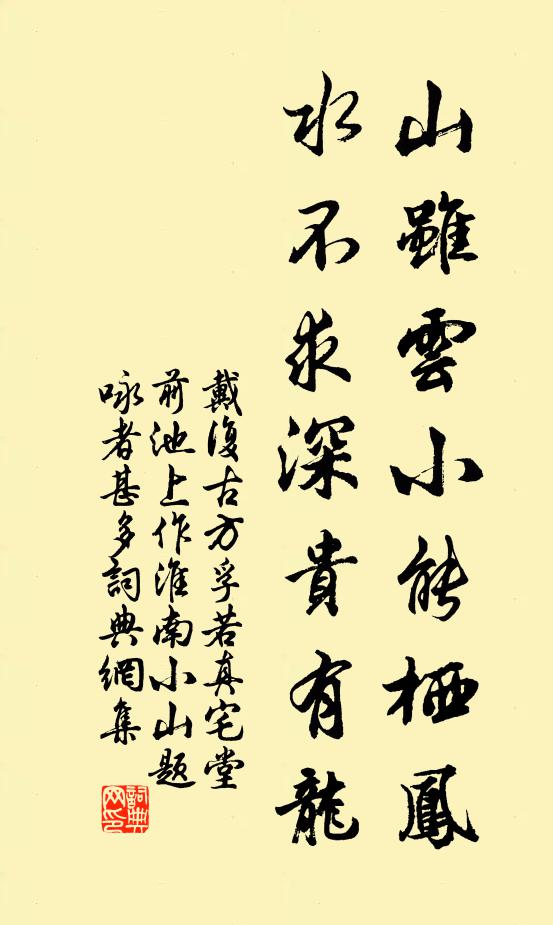 山雖雲小能栖鳳
水不求深貴有龍
戴復古方孚若真宅堂
前池上作淮南小山題
咏者甚多詞典網集
詞典网印